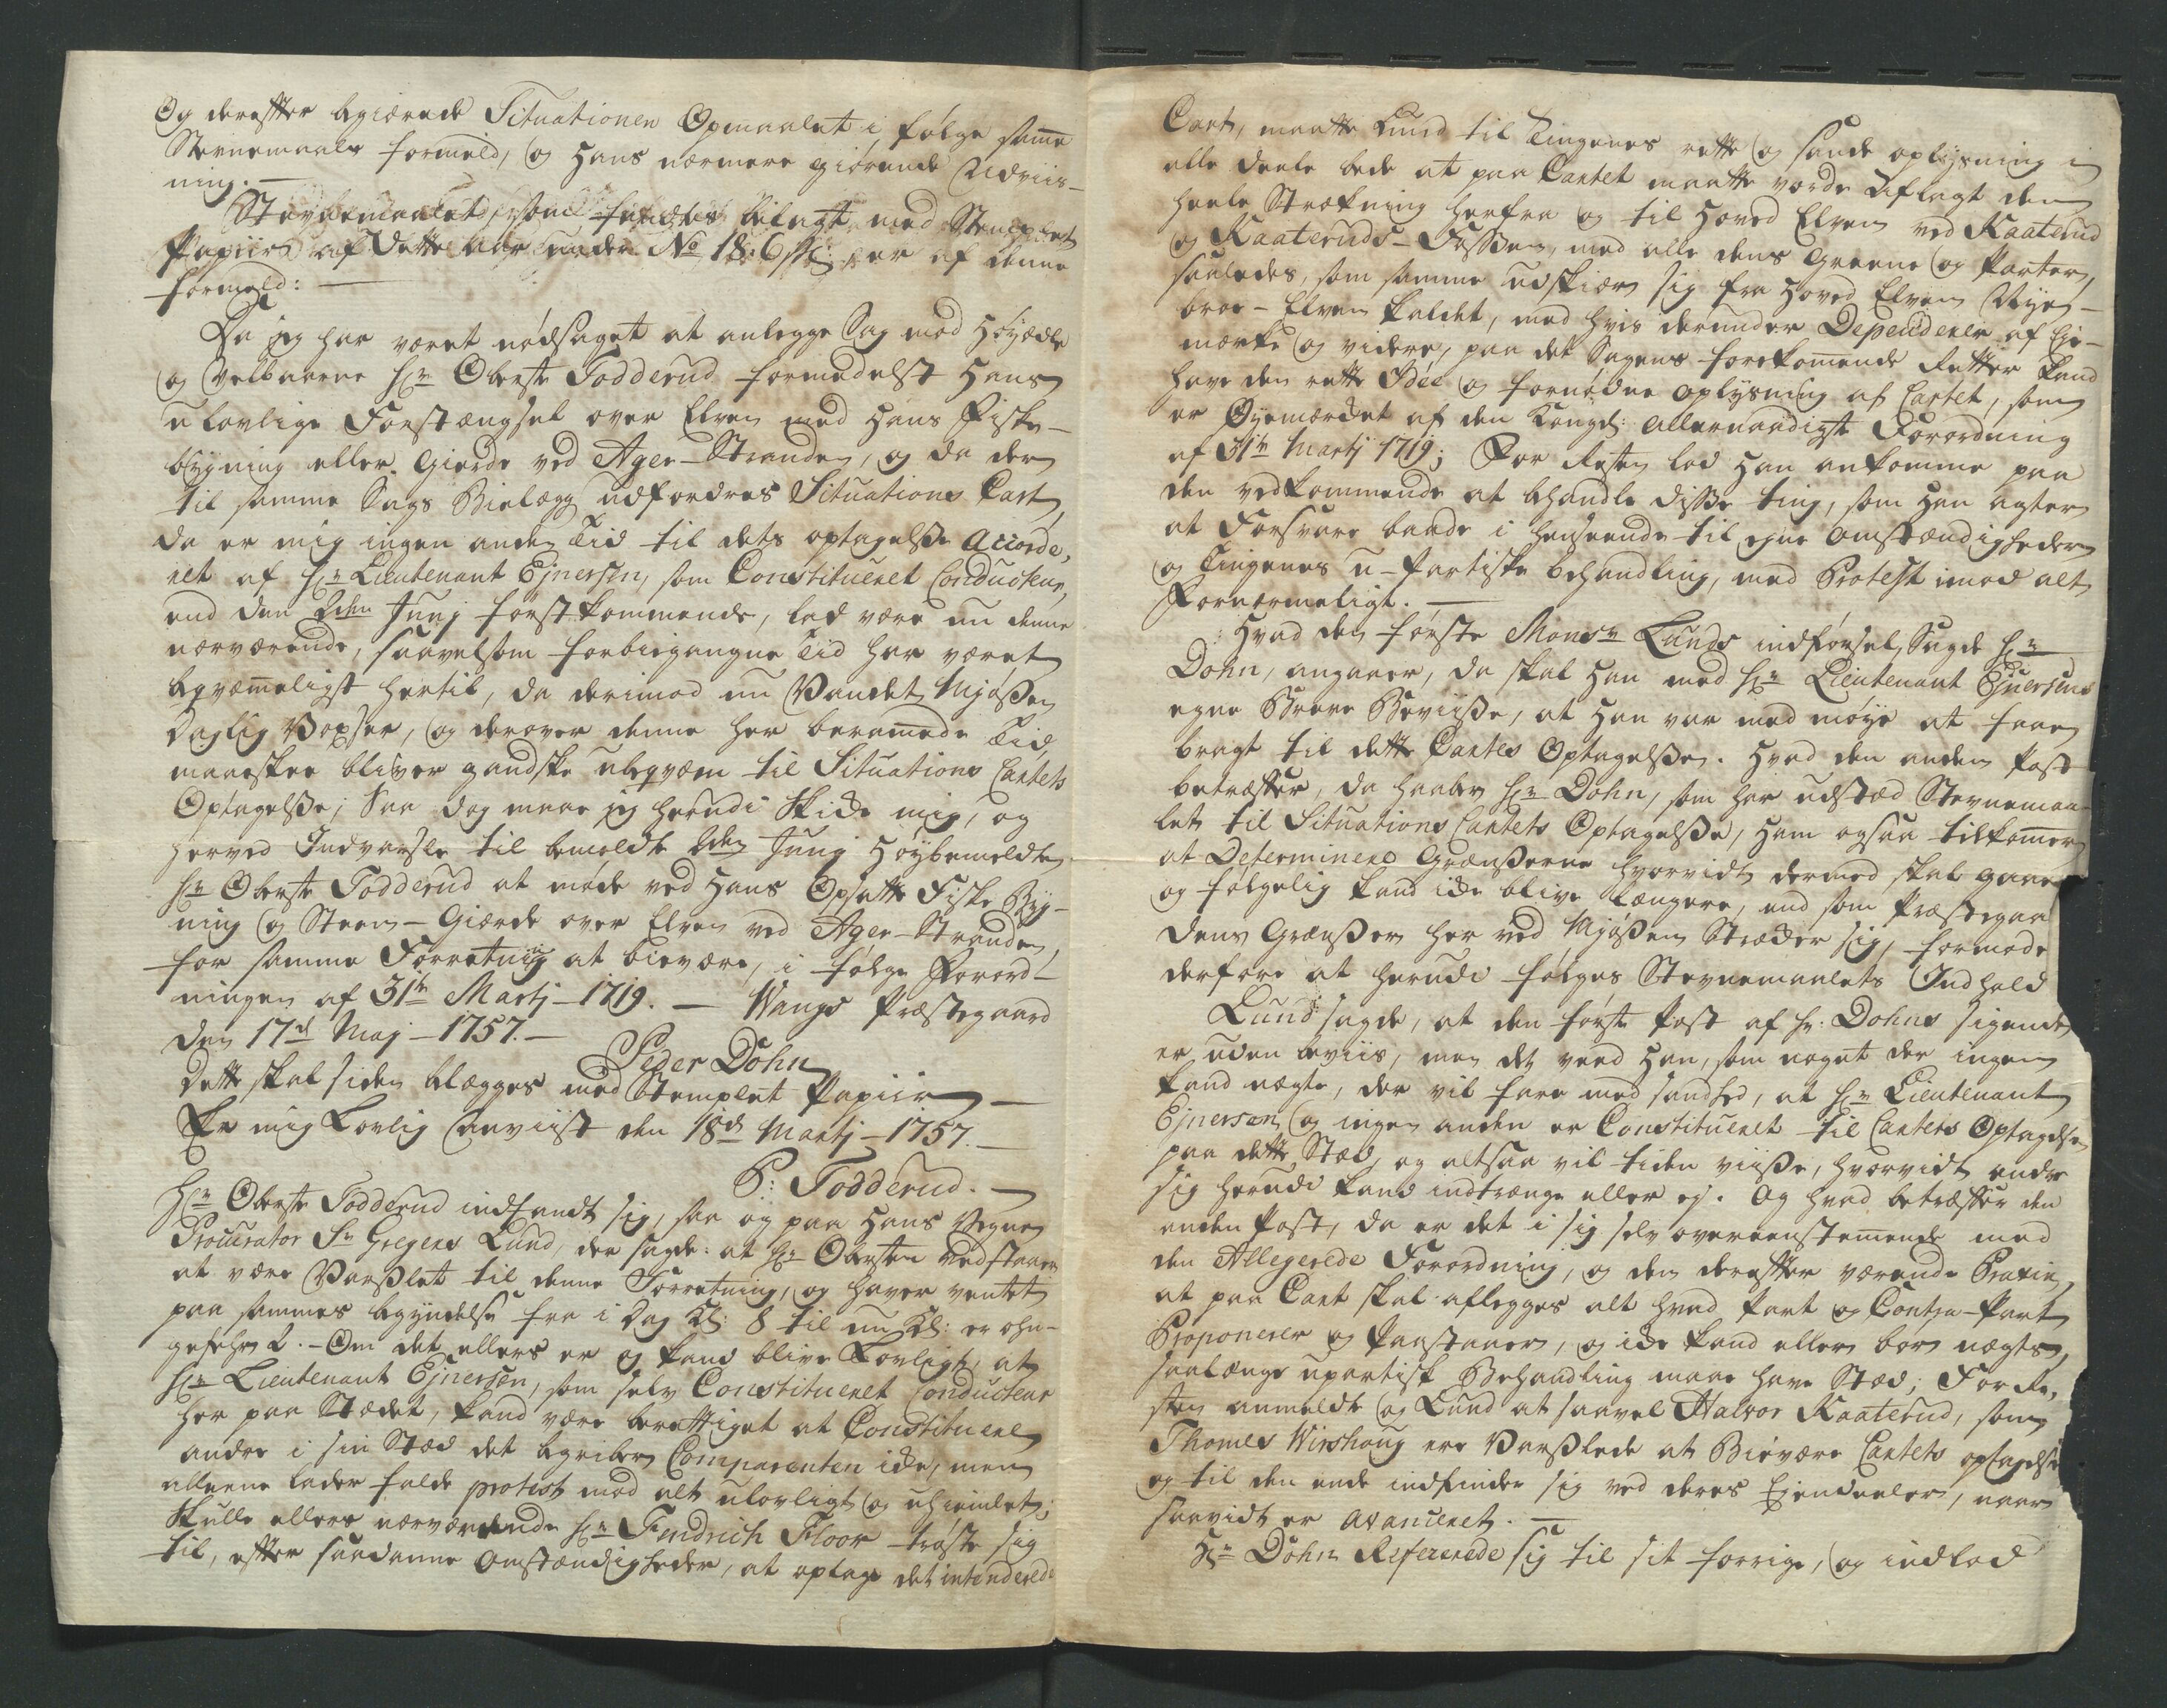 Og derefter begiærede Situationen Opmaalet i følge samme
Stevnemaals formeld, og Hans nærmere giørende Udviis-
ning. —
Stevnemaalet, som findes bilagt med Stemplet
Papiir af dette aar under No 18: 6 s: er af denne
formeld: —
Da jeg har været nødsaget at anlegge Sag mod Høyædle
og Velbaarne Hr Oberste Todderud formedelst Hans
ulovlige Forstængsel over Elven med Hans Fiske-
bygning eller Gierde ved Ager-Stranden, og da der
til samme Sags Bielæg udfordres Situations Cart,
da er mig ingen anden Tid til dets optagelse accorde-
ret af Hr Lieutenant Ejnersen, som Constitueret Conducteur,
end den 2den Junj førstkommende, lad være nu denne
nærværende, saavelsom forbiegangne Tid har været
beqvæmeligst hertil, da derimod nu Vandet Mjøssen
daglig Voxser, og derover denne her berammede Tid
maaskee bliver gandske ubeqvæm til Situations Cartets
Optagelse; Saa dog maae jeg herudi skikke mig, og
herved Indvarsle til bemeldte 2den Junj Høybemeldte
Hr Oberste Todderud at møde ved Hans Opsatte Fiske Byg-
ning og Steen-Giærde over Elven ved Ager-Stranden,
for samme Forretning at bievære, i følge Forord-
ningen af 31te Martj 1719. — Wangs Præstegaard
den 17de Maj 1757. —
Peder Dohn
Dette skal siden belægges med Stemplet Papiir —
Er mig Lovlig anviist den 18de Martj 1757. —
P: Todderud. —
Hr Oberste Todderud indfandt sig, saa og paa Hans Vegne
Procurator Sr Gregers Lund, der sagde: at Hr Obersten vedstaaer
at være Varslet til denne Forretning, og haver ventet
paa sammes begyndelse fra i Dag Kl: 8 til nu Kl: er ohn-
gefehr 2. - Om det ellers er og kand blive Lovligt, at
Hr Lieutenant Ejnersen, som selv Constitueret Conducteur
her paa Stædet, kand være berettiget at Constituere
andre i sin Stæd det begriber Comparenten ikke, men
alleene lader falde protest mod alt ulovligt og uhiemlet;
Skulle ellers nærværende Hr Fendrich Floor trøste sig
til, efter saadanne Omstændigheder, at optage det intenderede
Cart, maatte Lund til Tingenes rette og sande oplysning i
alle deele bede at paa Cartet maatte vorde aflagt den
heele Strækning herfra og til Hoved Elven ved Kaaterud
og Kaateruds-Fossen, med alle dens Greene og Parter,
saaledes, som samme udskiær sig fra Hoved Elven Nye-
broe-Elven kaldet, med hvis derunder Dependerer af Eje-
mærke og videre, paa det Sagens forekommende Retter kand
have den rette Idée og fornødne oplysning af Cartet, som
er Øyemærket af den Kongel: allernaadigste Forordning
af 31te Martj 1719; For Resten lod Han ankomme paa
den vedkommende at behandle disse ting, som Han agter
at Forsvare baade i henseende til egne Omstændigheder
og Tingenes u-partiske behandling, med Protest imod alt
Fornærmeligt. —
Hvad den første Monsr Lunds indførsel, Sagde Hr
Dohn, angaaer, da skal Han med Hr Lieutenant Ejnersens
egne Breve Beviise, at Han var med møye at faae
bragt til dette Cartes Optagelse. Hvad den anden Post
betræffer, da haaber Hr Dohn, som har udstæd Stevnemaa-
let til Situations Cartets Optagelse, Ham ogsaa tilkommer
at Determinere Grændserne hvorvidt dermed skal gaaes
og følgelig kand ikke blive længere, end som Præstegaar
dens Grændser her ved Mjøssen Strækker sig, formode
derfore at herudi følges Stevnemaalets Indhold
Lund sagde, at den første Post af Hr: Dohns sigende
er uden beviis, men det veed Han, som noget der ingen
kand nægte, der vil fare med sandhed, at Hr Lieutenant
Ejnersen og ingen anden er Constitueret til Cartets Optagelse
paa dette Stæd, og altsaa vil tiden viise, hvorvidt andre
sig herudi kand indtrænge eller ej. Og hvad betræffer den
anden Post, da er det i sig selv overeenstemmende med
den Allegerede Forordning, og den derefter værende Praxin,
at paa Cart skal aflegges alt hvad Part og Contra-Part
Proponerer og Paastaaer, og ikke kand eller bør nægtes,
saalænge upartisk Behandling maae have Stæd; For Re-
sten anmeldte og Lund at saavel Halvor Kaaterud, som
Thomes Winshoug ere Varslede at Bievære Cartets optagelse
og til den ende indfinder sig ved deres Ejendeeler, naar
saavidt er avanceret. —
Hr Dohn Refererede sig til sit forrige, og indlod